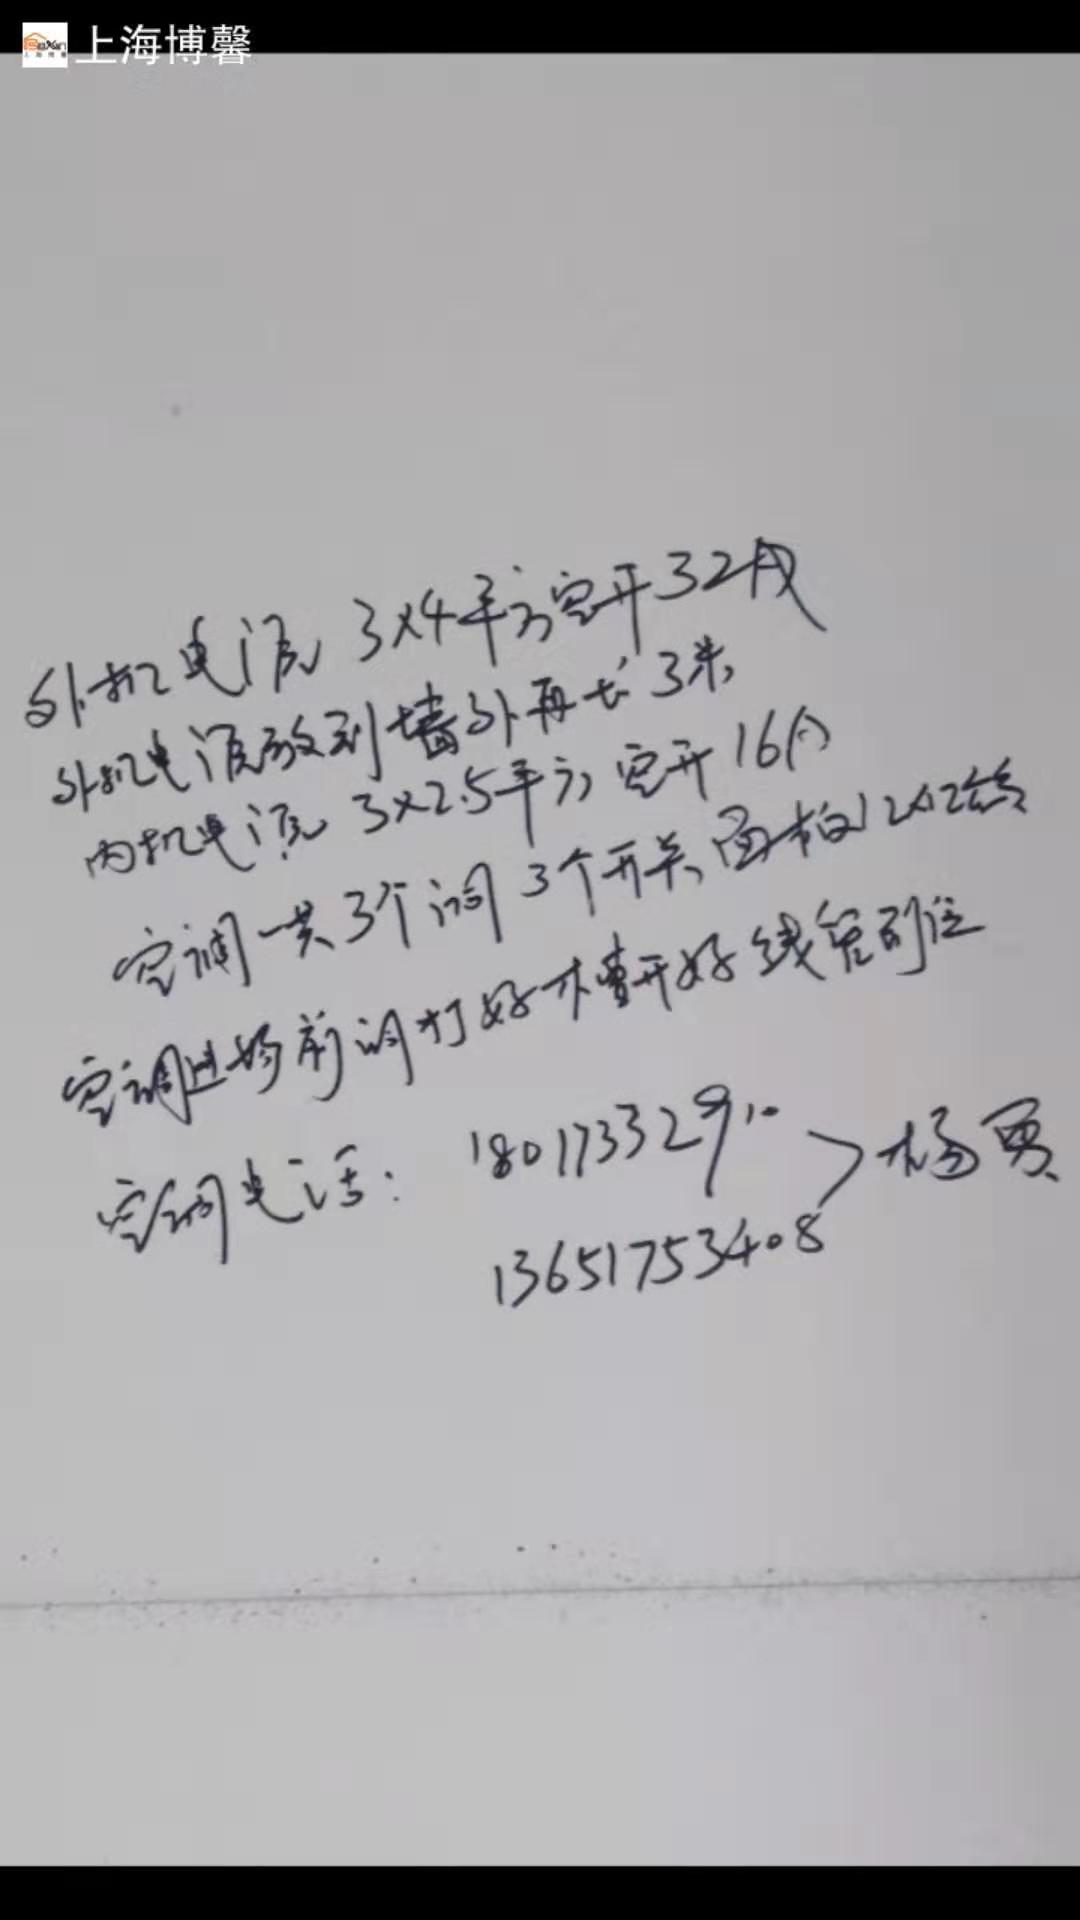 上海博馨
外机电源 3×4平方空开32A
外机电源放到墙外再长3米
内机电源 3×2.5平方空开16A
空调一共3个洞 3个开关面板
空调进场前洞打好槽开好线管到位
空调电话: 18017332910 杨勇
13651753408